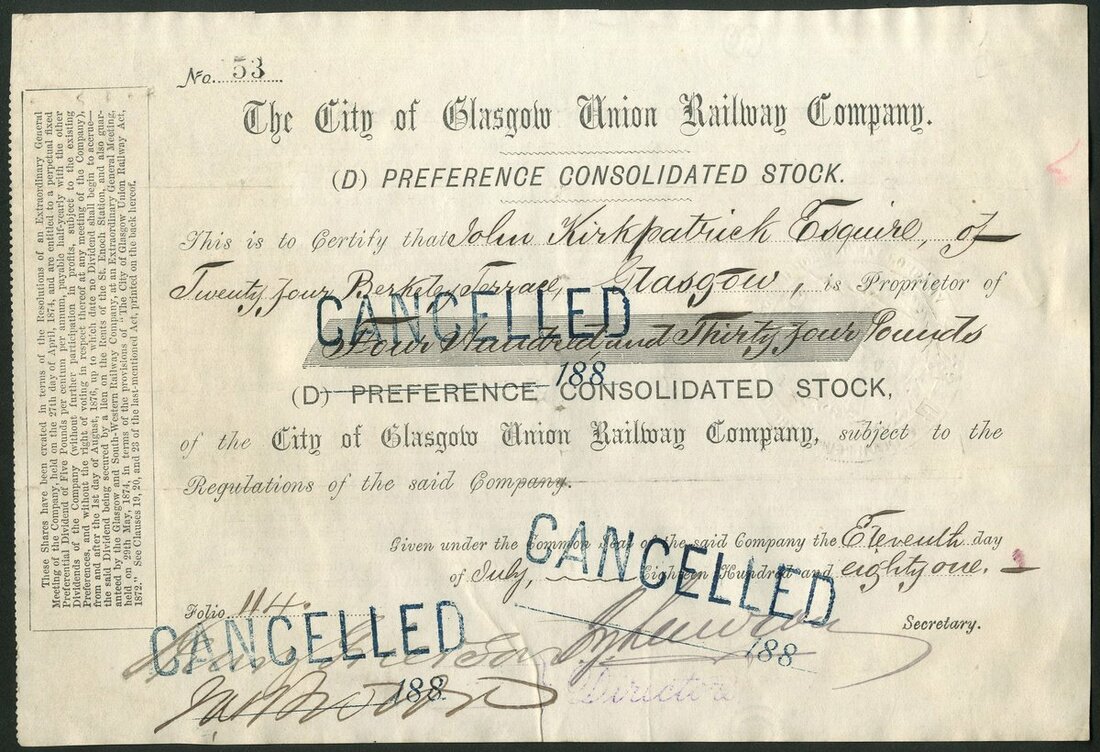 No. 53
The City of Glasgow Union Railway Company.
(D) PREFERENCE CONSOLIDATED STOCK.
This is to Certify that John Kirkpatrick Esquire, of
Twenty four Berkeley Terrace, Glasgow, is Proprietor of
CANCELLED
Four Hundred and Thirty four Pounds
188
(D) PREFERENCE CONSOLIDATED STOCK,
of the City of Glasgow Union Railway Company, subject to the
Regulations of the said Company.
CANCELLED
Given under the Common Seal of the said Company the Eleventh day
of July, Eighteen Hundred and eighty one.
Folio 114.
Secretary.
CANCELLED
188
188
Directors
These Shares have been created in terms of the Resolutions of an Extraordinary General
Meeting of the Company, held on the 27th day of April, 1874, and are entitled to a perpetual fixed
Preferential Dividend of Five Pounds per centum per annum, payable half-yearly with the other
Dividends of the Company (without further participation in profits, subject to the existing
Preferences, and without the right of voting in respect thereof at any meeting of the Company),
from and after the 1st day of August, 1876, up to which date no Dividend shall begin to accrue—
the said Dividend being secured by a lien on the Rents of the St. Enoch Station, and also guar-
anteed by the Glasgow and South-Western Railway Company, at an Extraordinary General Meeting,
held on 29th May, 1874, in terms of the provisions of "The City of Glasgow Union Railway Act,
1872." See Clauses 19, 20, and 23 of the last-mentioned Act, printed on the back hereof.